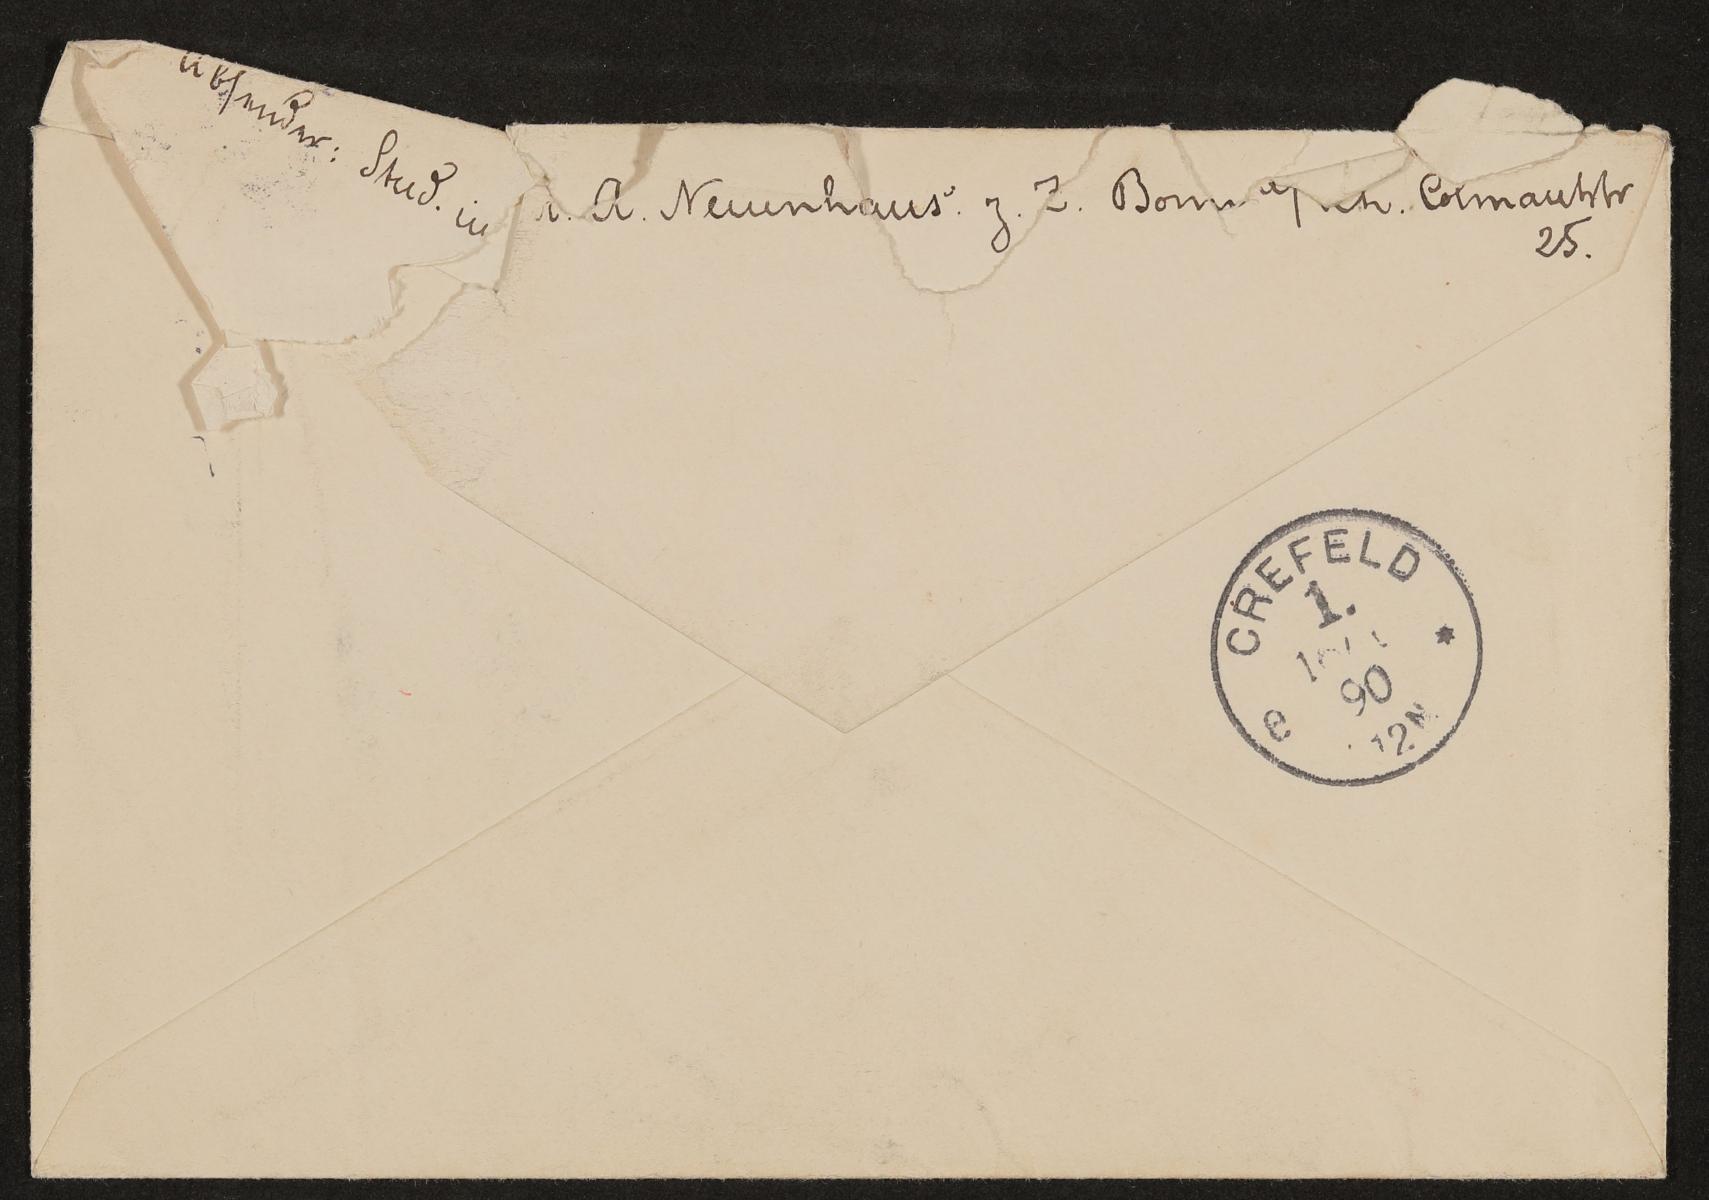 Absender: Stud. A. Neuenhaus. z. Z. Bonn a/Rh. Colmantstr
25.
CREFELD
1.
90
12N
e *